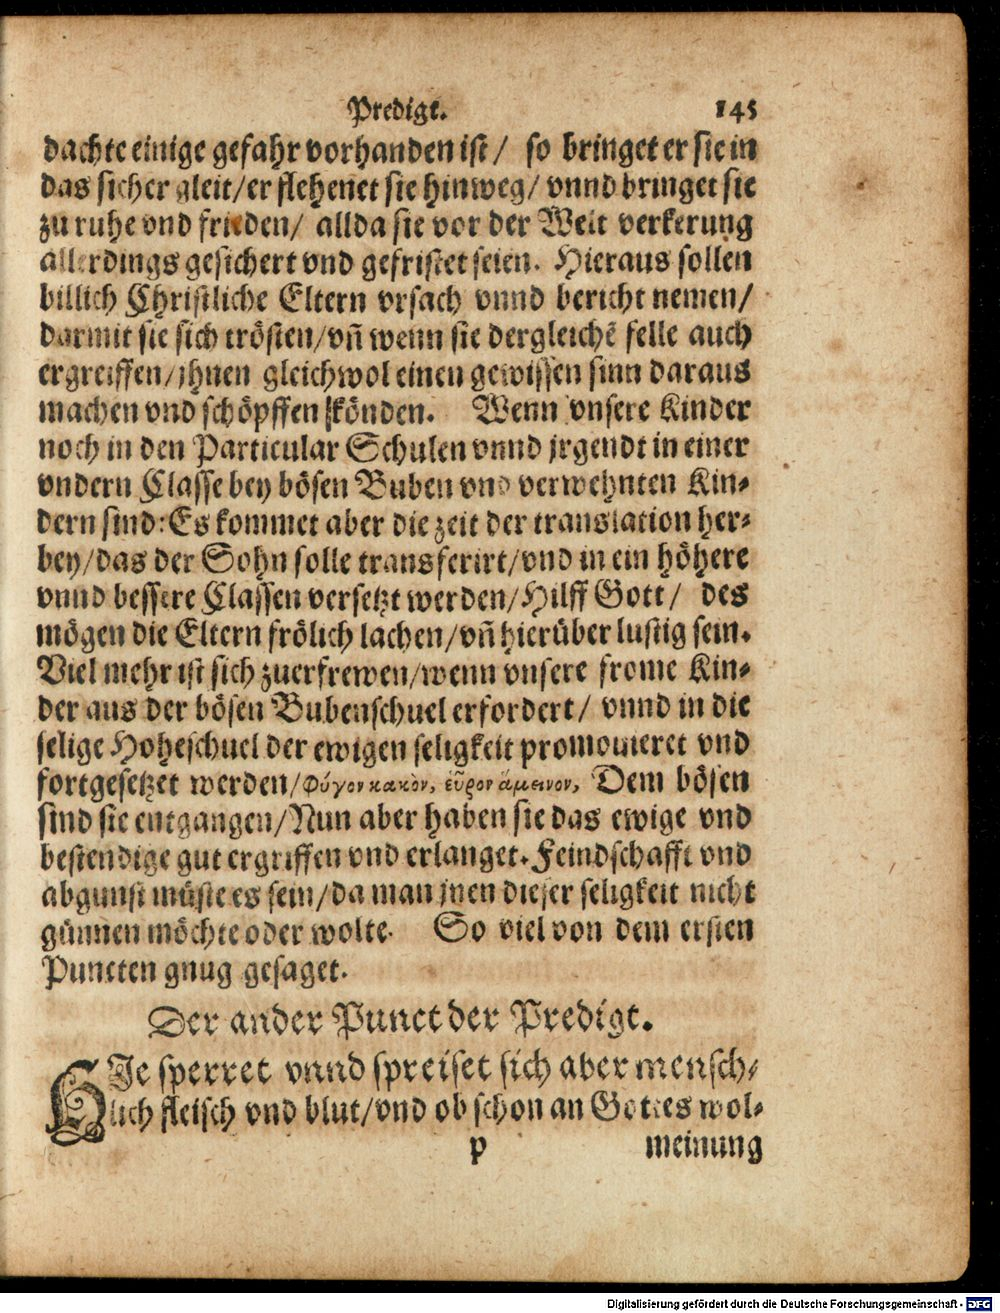 Predigt. 145
dachte einige gefahr vorhanden ist / so bringet er sie in
das sicher gleit / er flehenet sie hinweg / vnnd bringet sie
zu ruhe vnd frieden / allda sie vor der Welt verkerung
allerdings gesichert vnd gefristet seien. Hieraus sollen
billich Christliche Eltern vrsach vnnd bericht nemen /
darmit sie sich trösten / vñ wenn sie dergleichẽ felle auch
ergreiffen / jhnen gleichwol einen gewissen sinn daraus
machen vnd schöpffen könden. Wenn vnsere Kinder
noch in den Particular Schulen vnnd jrgendt in einer
vndern Classe bey bösen Buben vnd verwehnten Kin-
dern sind: Es kommet aber die zeit der translation her-
bey / das der Sohn solle transferirt / vnd in ein höhere
vnnd bessere Classen versetzt werden / Hilff Gott / des
mögen die Eltern frölich lachen / vñ hierüber lustig sein.
Viel mehr ist sich zuerfrewen / wenn vnsere frome Kin-
der aus der bösen Bubenschuel erfordert / vnnd in die
selige Hoheschuel der ewigen seligkeit promouieret vnd
fortgesetzet werden / Φύγον κακὸν, εὗρον ἄμεινον, Dem bösen
sind sie entgangen / Nun aber haben sie das ewige vnd
bestendige gut ergriffen vnd erlanget. Feindschafft vnd
abgunst müste es sein / da man jnen dieser seligkeit nicht
günnen möchte oder wolte. So viel von dem ersten
Puncten gnug gesaget.
Der ander Punct der Predigt.
HJe sperret vnnd spreiset sich aber mensch-
lich fleisch vnd blut / vnd ob schon an Gottes wol-
p meinung
Digitalisierung gefördert durch die Deutsche Forschungsgemeinschaft - DFG